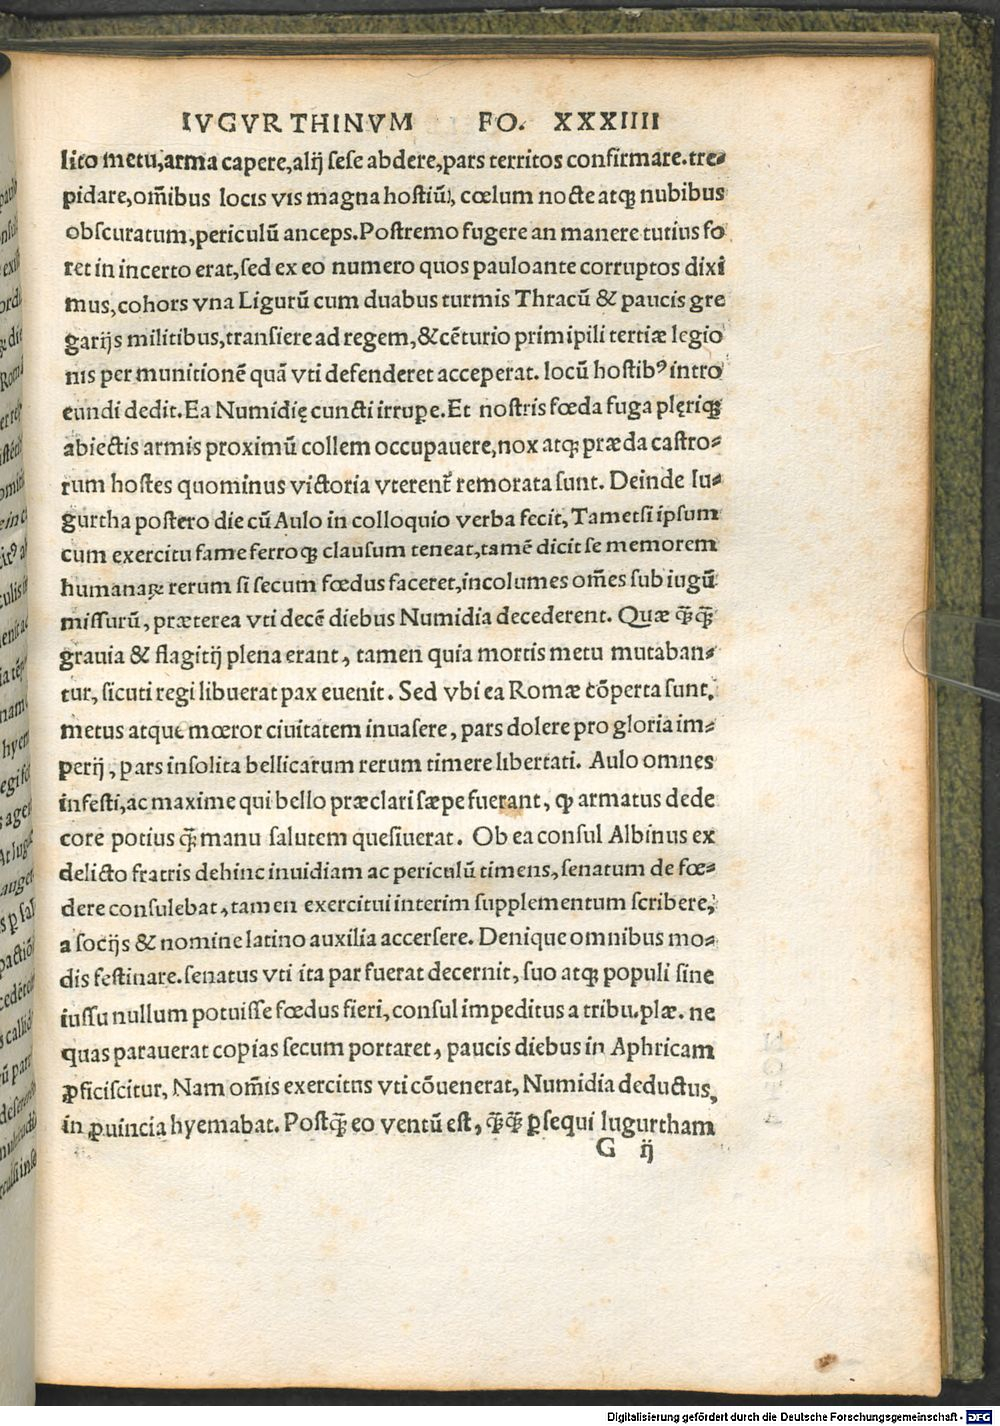 IVGVRTHINVM FO. XXXIIII
lito metu,arma capere,alij sese abdere,pars territos confirmare.tre-
pidare,om̄ibus locis vis magna hostiū, cœlum nocte atqꝫ nubibus
obscuratum,periculū anceps.Postremo fugere an manere tutius fo
ret in incerto erat,sed ex eo numero quos pauloante corruptos dixi
mus,cohors vna Ligurū cum duabus turmis Thracū & paucis gre
garijs militibus,transiere ad regem,&cēturio primipili tertiæ legio
nis per munitionē quā vti defenderet acceperat. locū hostibꝰ intro
eundi dedit.Ea Numidię cuncti irrupe.Et nostris fœda fuga plęriqꝫ
abiectis armis proximū collem occupauere,nox atqꝫ præda castro-
rum hostes quominus victoria vterent᷑ remorata sunt. Deinde Iu-
gurtha postero die cū Aulo in colloquio verba fecit, Tametsi ipsum
cum exercitu fame ferroqꝫ clausum teneat,tamē dicit se memorem
humanaꝝ rerum si secum fœdus faceret,incolumes om̄es sub iugū
missurū, præterea vti decē diebus Numidia decederent. Quæ q̄̃q̄̃
grauia & flagitij plena erant, tamen quia mortis metu mutaban-
tur, sicuti regi libuerat pax euenit. Sed vbi ea Romæ cōperta sunt,
metus atque mœror ciuitatem inuasere, pars dolere pro gloria im-
perij, pars insolita bellicarum rerum timere libertati. Aulo omnes
infesti,ac maxime qui bello præclari sæpe fuerant, ꝙ armatus dede
core potius q̄̃ manu salutem quesiuerat. Ob ea consul Albinus ex
delicto fratris dehinc inuidiam ac periculū timens, senatum de fœ-
dere consulebat, tamen exercitui interim supplementum scribere,
a socijs & nomine latino auxilia accersere. Denique omnibus mo-
dis festinare.senatus vti ita par fuerat decernit, suo atqꝫ populi sine
iussu nullum potuisse fœdus fieri, consul impeditus a tribu.plæ. ne
quas parauerat copias secum portaret, paucis diebus in Aphricam
ꝓficiscitur, Nam om̄is exercitus vti cōuenerat, Numidia deductus,
in ꝓuincia hyemabat. Postq̄̃ eo ventū est, q̄̃q̄̃ ꝑsequi Iugurtham
G ij
Digitalisierung gefördert durch die Deutsche Forschungsgemeinschaft - DFG